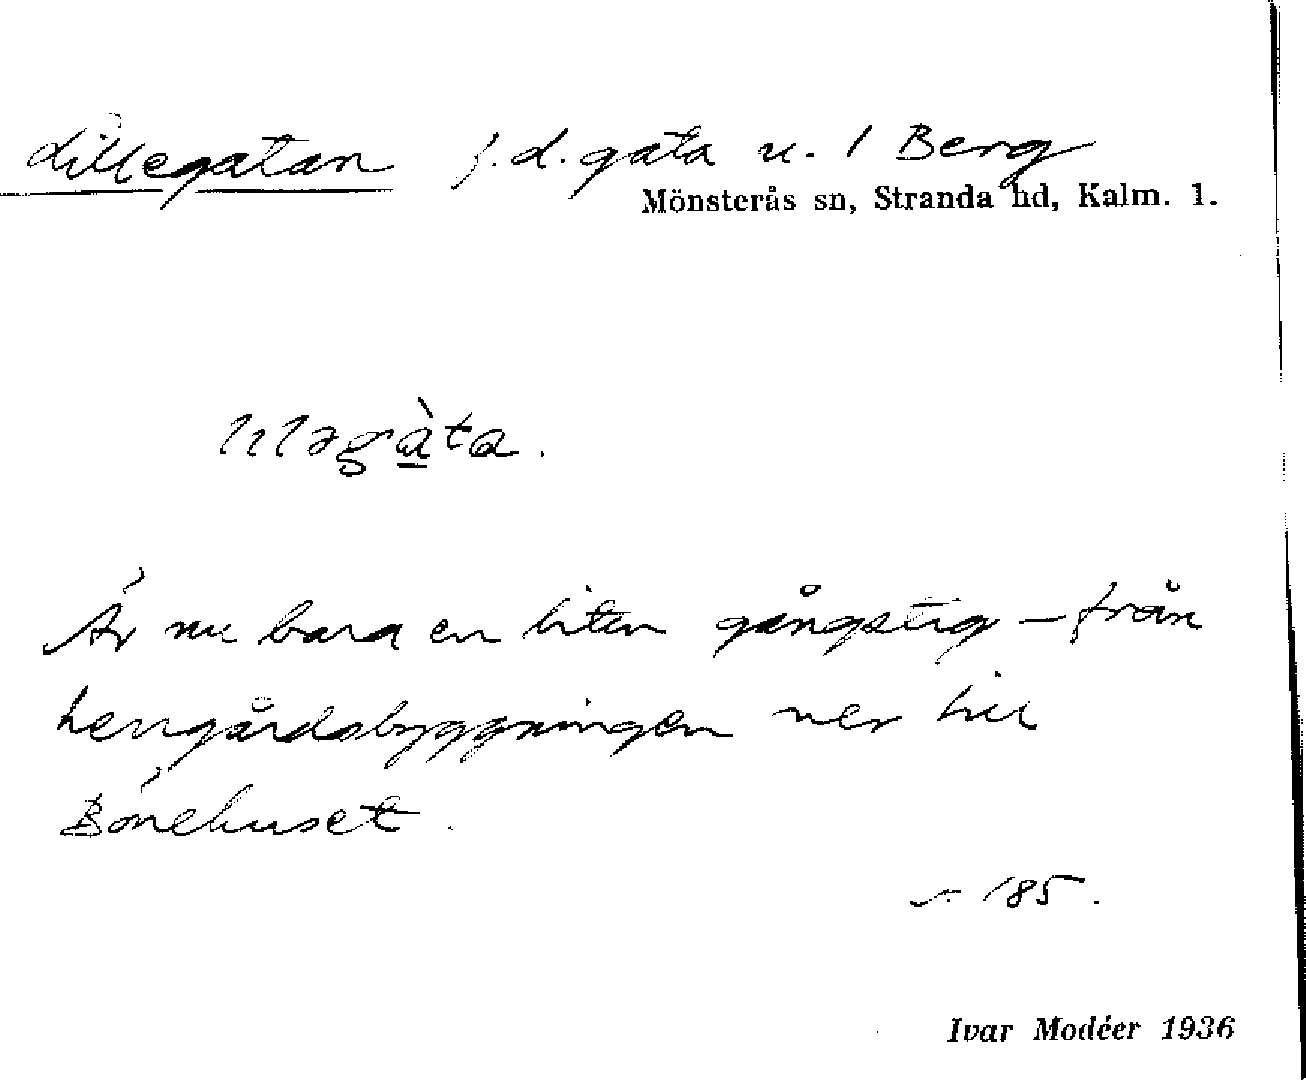 Lillegatan f.d. gata u. 1 Berg
Mönsterås sn, Stranda hd, Kalm. l.
lıləgàta.
Är nu bara en liten gångstig – från
herrgårdsbyggningen ner till
Bönehuset.
s. 185.
Ivar Modéer 1936